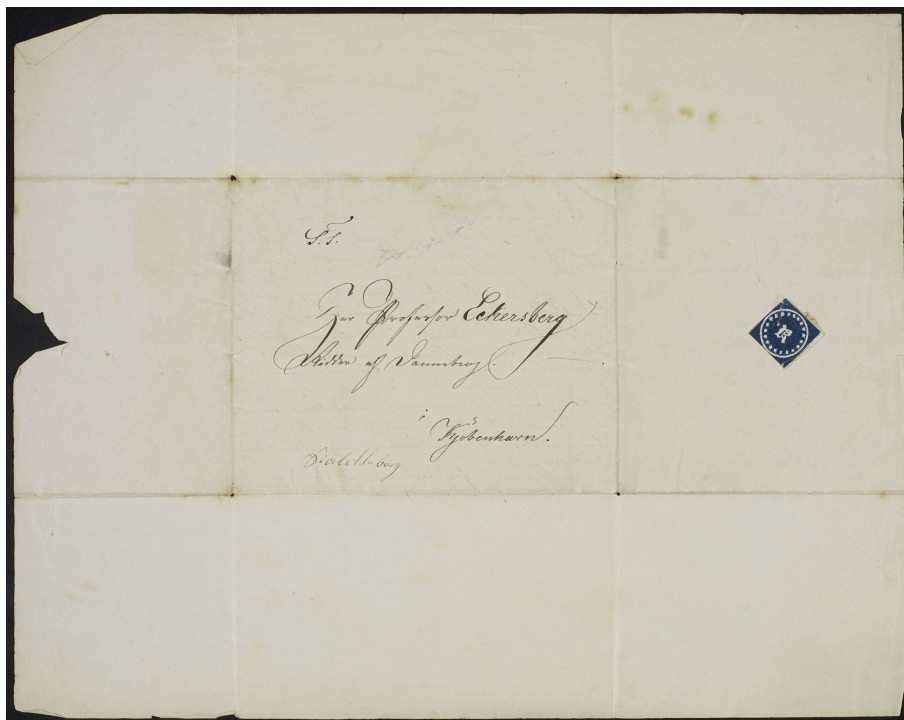 S. T.
Herr Professor Eckersberg
Ridder af Dannebrog.
i
Kjöbenhavn.
Charlottenborg